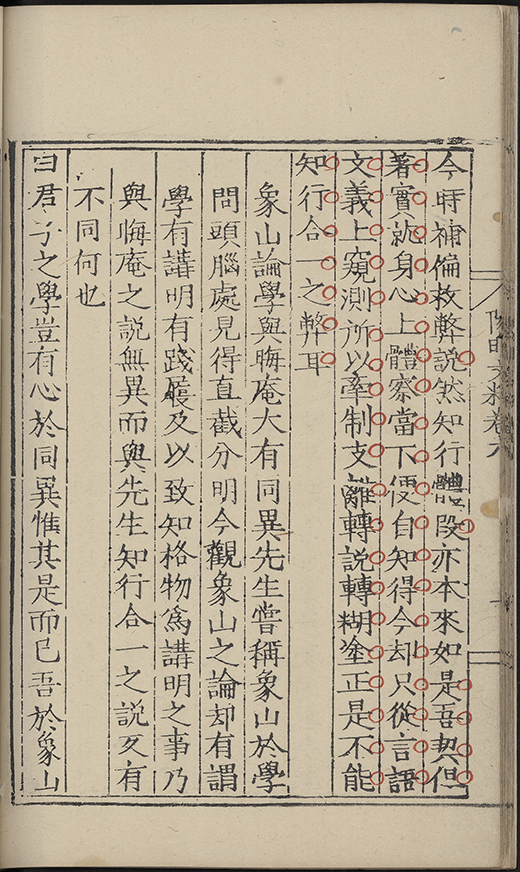 陽明文粹卷六
今時補偏救弊說然知行體段亦本來如是吾契但
著實就身心上體察當下便自知得今却只從言語
文義上窺測所以牽制支離轉說轉糊塗正是不能
知行合一之弊耳
象山論學與晦庵大有同異先生嘗稱象山於學
問頭腦處見得直截分明今觀象山之論却有謂
學有講明有踐履及以致知格物爲講明之事乃
與晦庵之說無異而與先生知行合一之說反有
不同何也
曰君子之學豈有心於同異惟其是而已吾於象山